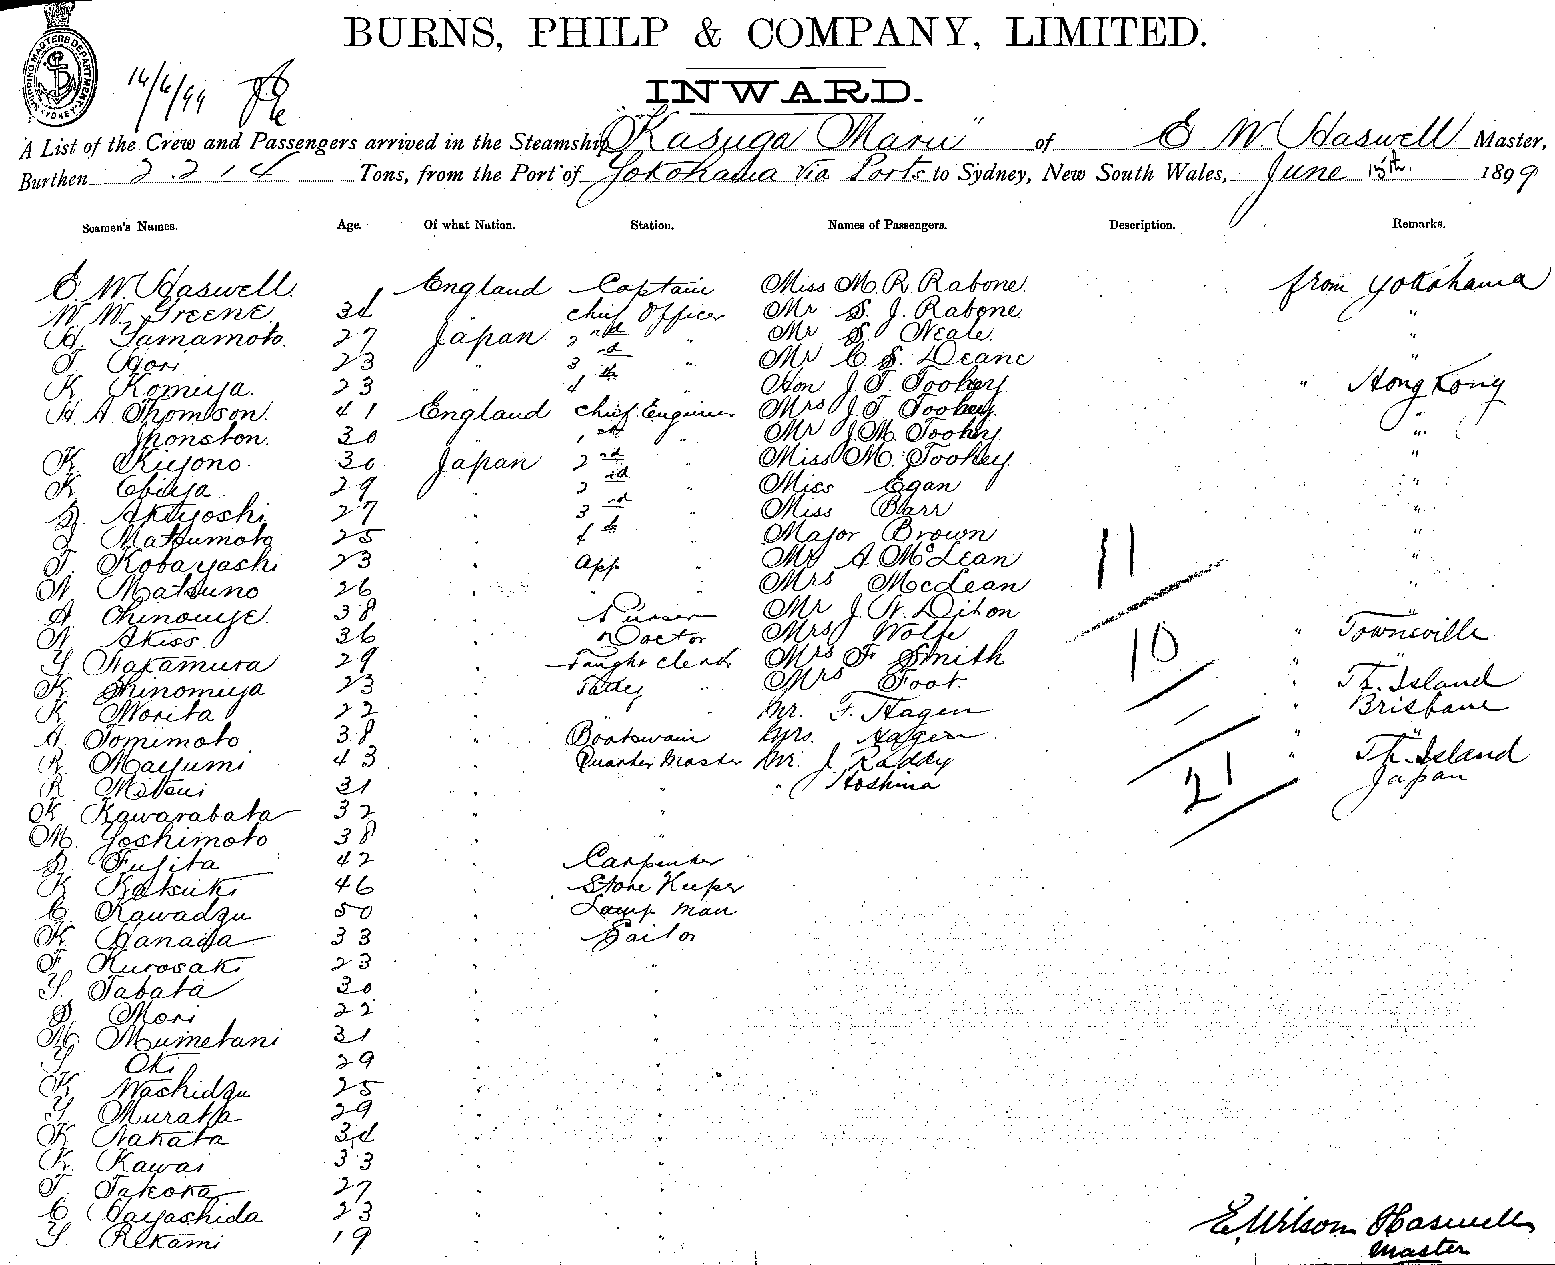 BURNS, PHILP & COMPANY, LIMITED.
INWARD.
SHIPPING MASTERS DEPARTMENT SYDNEY
14/6/99
A List of the Crew and Passengers arrived in the Steamship "Kasuga Maru" of E W Haswell Master,
Burthen 2214 Tons, from the Port of Yokohama via Ports to Sydney, New South Wales, June 13th. 1899
Seamen's Names. Age. Of what Nation. Station. Names of Passengers. Description. Remarks.
E. W. Haswell England Captain Miss M. R. Rabone from Yokohama
W. W. Greene 34 Chief Officer Mr S. J. Rabone "
H. Yamamoto 27 Japan 2nd " Mr S Neale "
T. Hori 23 " 3rd " Mr C. S. Deane "
K Komiya 23 " 4th " Hon J. T. Toohey " Hong Kong
H A Thomson 41 England Chief Engineer Mrs J T Toohey "
Jhonston 30 1st " Mr J. M. Toohey "
K Kiyono 30 Japan 2nd " Miss M. Toohey "
K Ebiya 29 " 2nd " Miss Egan "
S. Akiyoshi 27 " 3rd " Miss Barr "
J Matsumoto 25 " 4th " Major Brown "
T. Kobayashi 23 " App " Mr A McLean "
N Matsuno 26 " " " Mrs McLean "
A Chinouye 38 " Purser Mr J. W. Dixon "
N Akiss 36 " Doctor Mrs Wolfe " Townsville
Y Nakamura 29 " Faught Clerk Mrs F Smith " "
K Shinomiya 23 " " Mrs Foot. " Th. Island
K Morita 22 " " Mr. F. Hagen " Brisbane
A Tomimoto 38 " Boatswain Mrs. Hagen " "
R Mayumi 43 " Quarter Master Mr. J Raddy " Th. Island
R Mitsui 31 " " " Hoshina Japan
K Kawarabata 32 " "
M. Yoshimoto 38 " "
S Fujita 42 " Carpenter
K Katsuki 46 " Store Keeper
C Kawadzu 50 " Lamp man
K Hanada 33 " Sailor
F Kurosaki 23 " "
Y. Tabata 30 " "
S Mori 22 " "
M Mumetani 31 " "
Y Oki 29 " "
K Washidzu 25 " "
Y Murata 29 " "
K Nakata 34 " "
K. Kawai 33 " "
T. Takoka 27 " "
C Hayashida 23 " "
Y Rikami 19 " "
11
10
21
E. Wilson Haswell
Master